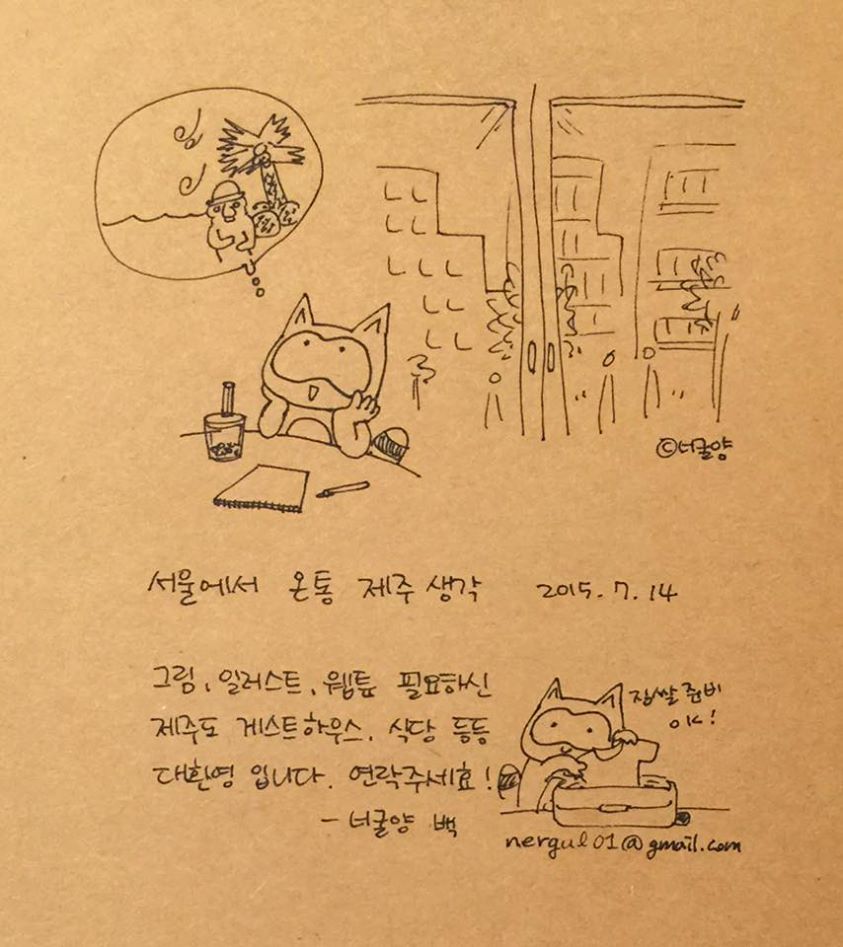 ©너굴양
서울에서 온통 제주 생각 2015.7.14
그림, 일러스트, 웹툰 필요하신
제주도 게스트하우스, 식당 등등
대환영 입니다. 연락주세효!
- 너굴양 백
짐쌀 준비
OK!
nergul01@gmail.com